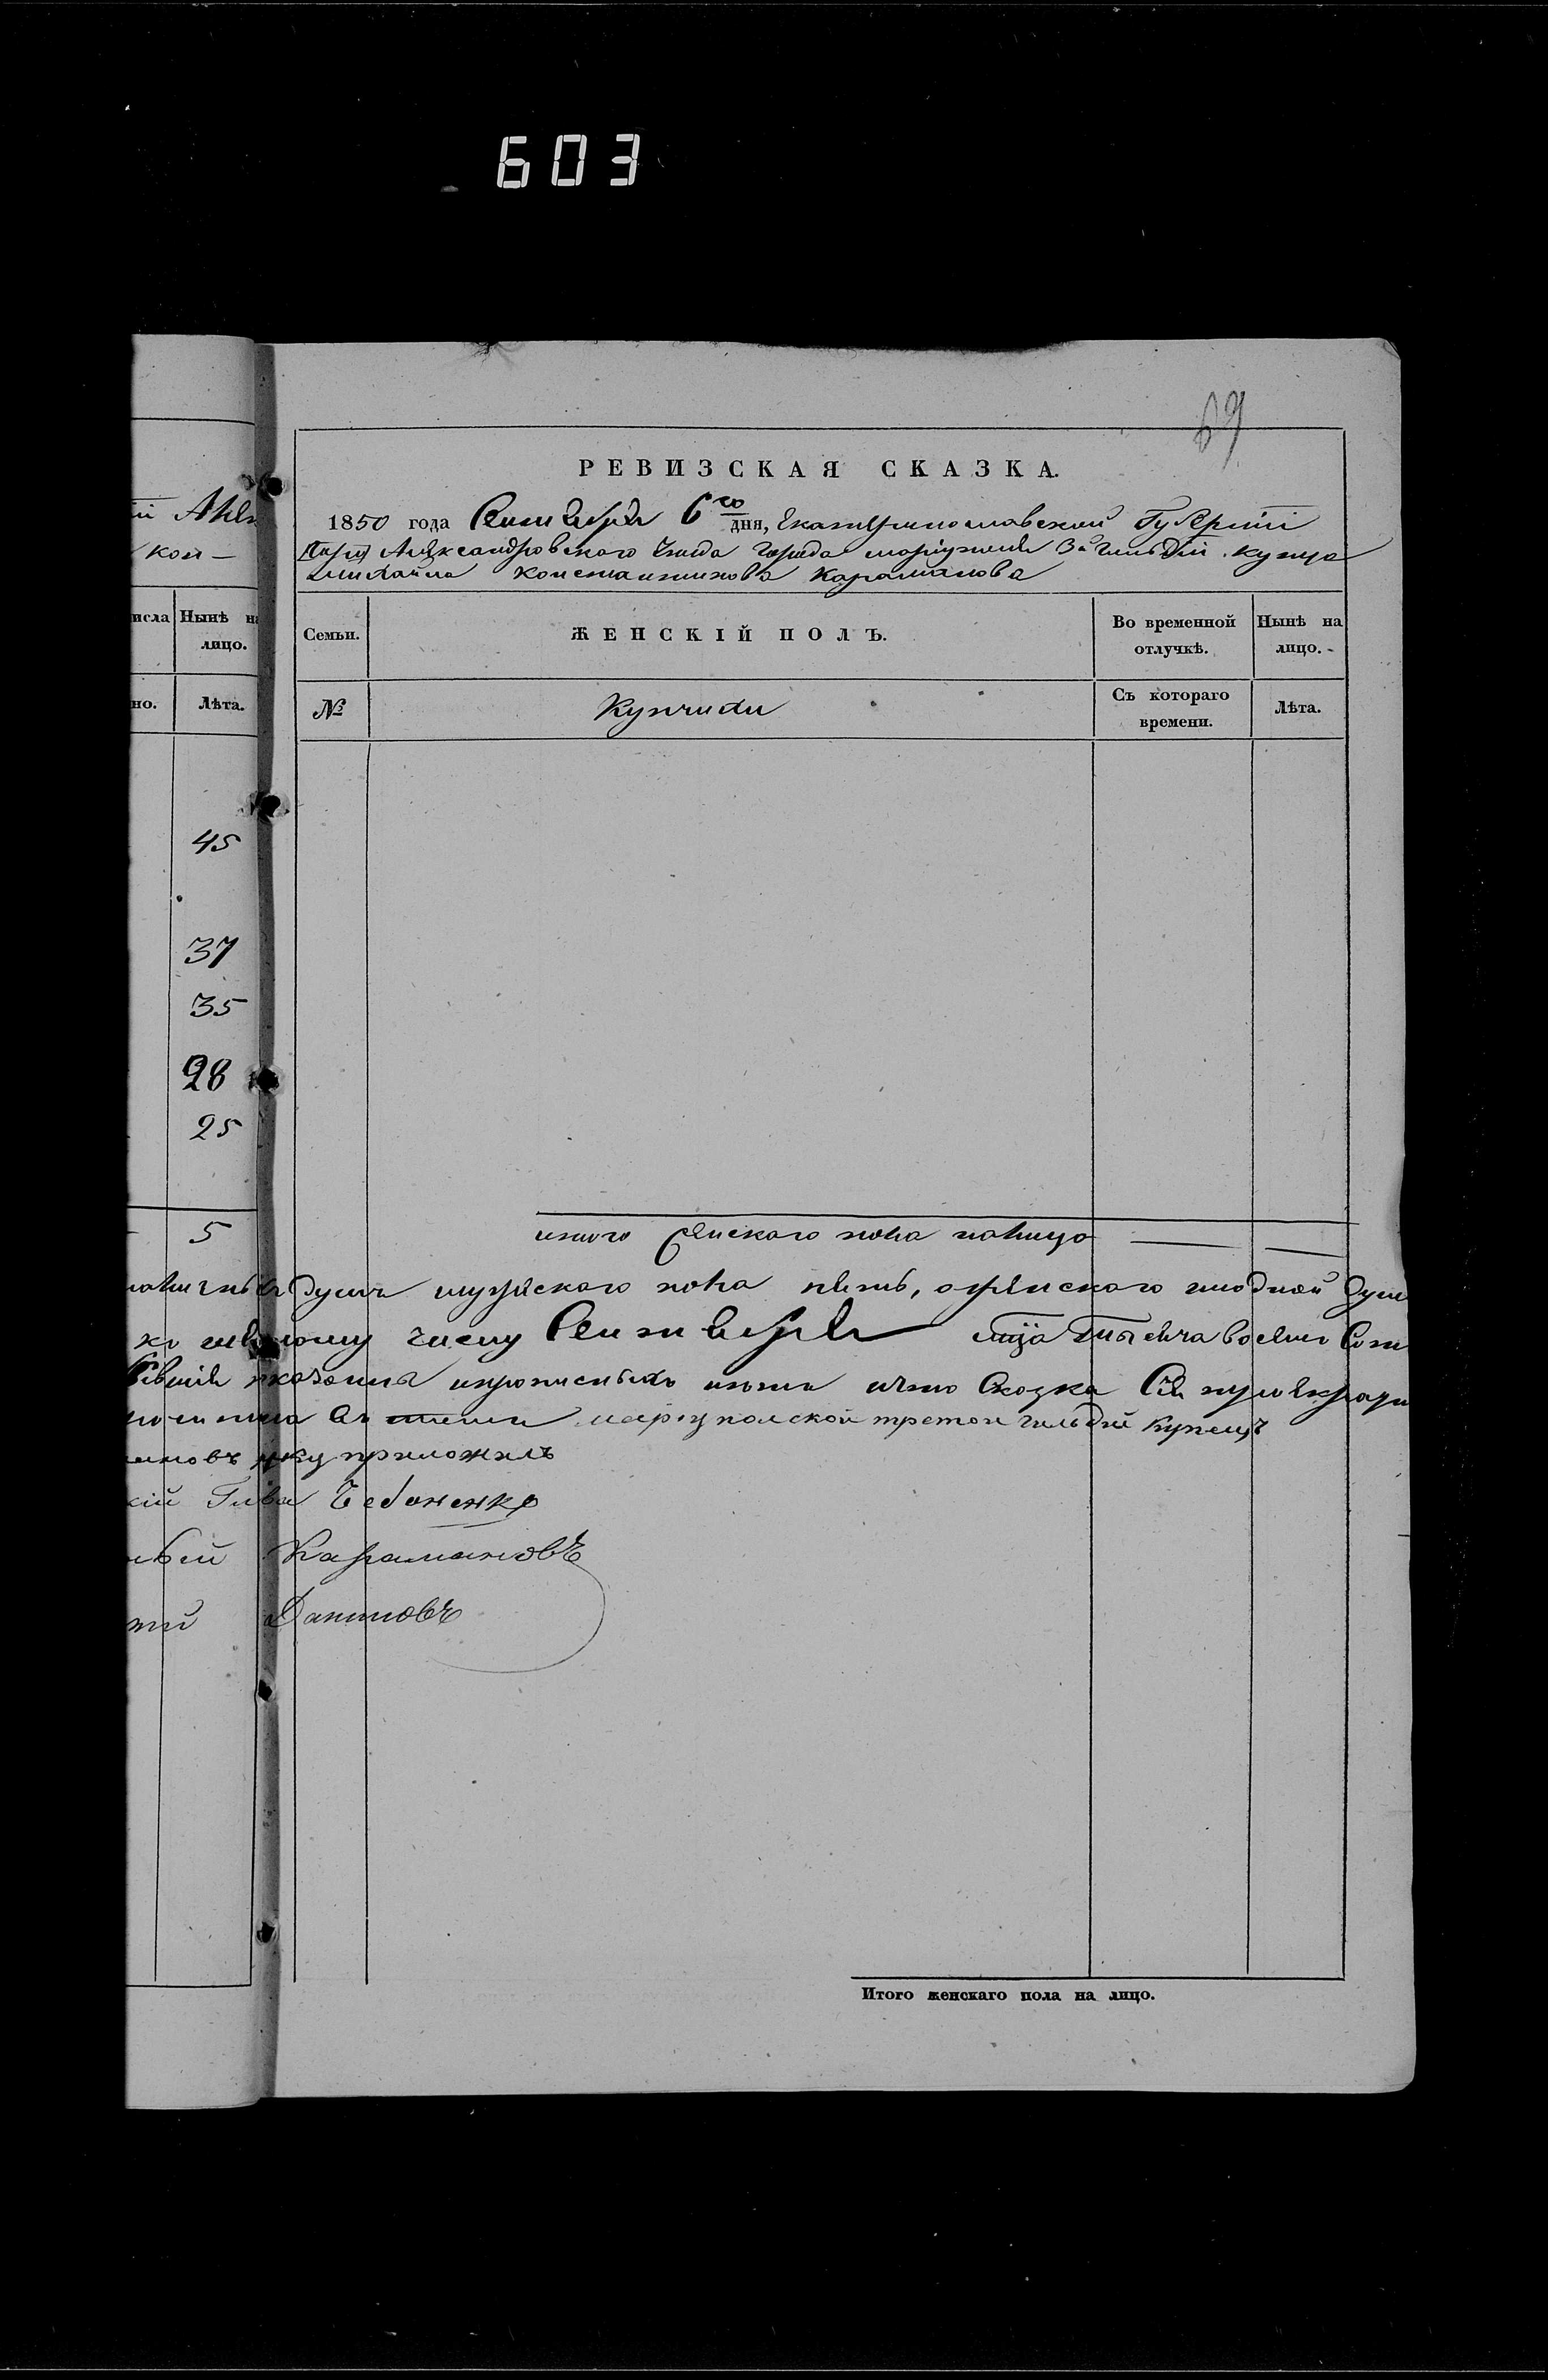 603
69
РЕВИЗСКАЯ СКАЗКА.
1850 года Сентября 6го дня, Екатеринославской Губерніи
Александровскаго уезда города маріуполя 3й гильдіи купца
михайла константинова Караманова
исла Нынѣ на лицо.
но. Лѣта.
Семьи. ЖЕНСКІЙ ПОЛЪ. Во временной отлучкѣ. Нынѣ на лицо.
№ Купчихи Съ котораго времени. Лѣта.
45
37
35
28
25
5
итого женскаго пола налицо — —
душъ мужескаго пола пять, аженскаго ниодной душ
числу Сентября мца тысяча восемь Сот
сказка Сія
маріупольской третой гильдіи купецъ
руку приложилъ
кій Глава Чебаненко
Карамановъ
Даниловъ
Итого женскаго пола на лицо.